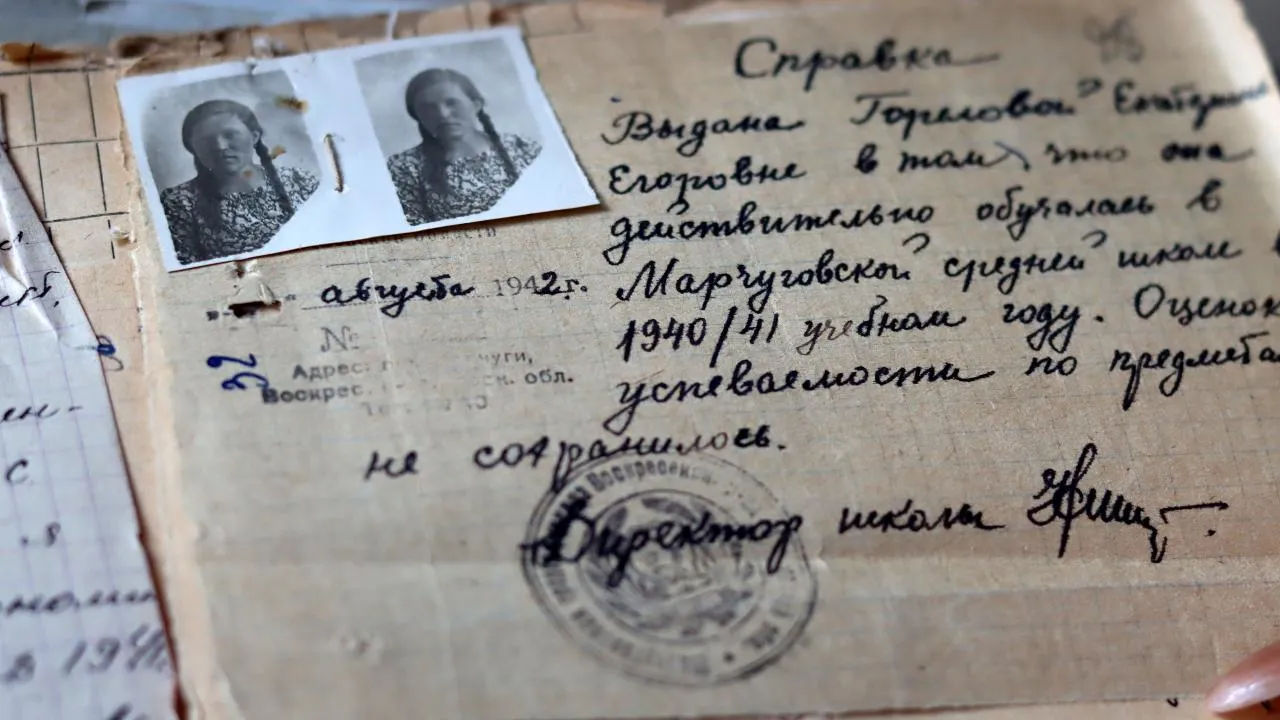 Справка
Выдана Гореловой Екатерине
Егоровне в том, что она
действительно обучалась в
Марчуговской средней школе в
1940/41 учебном году. Оценок
успеваемости по предметам
не сохранилось.
Директор школы
области
августа 1942 г.
№
Адрес: чуги,
Воскрес. ск. обл.
32
ст.
ен-
с
.я
в 194
Воскресенск